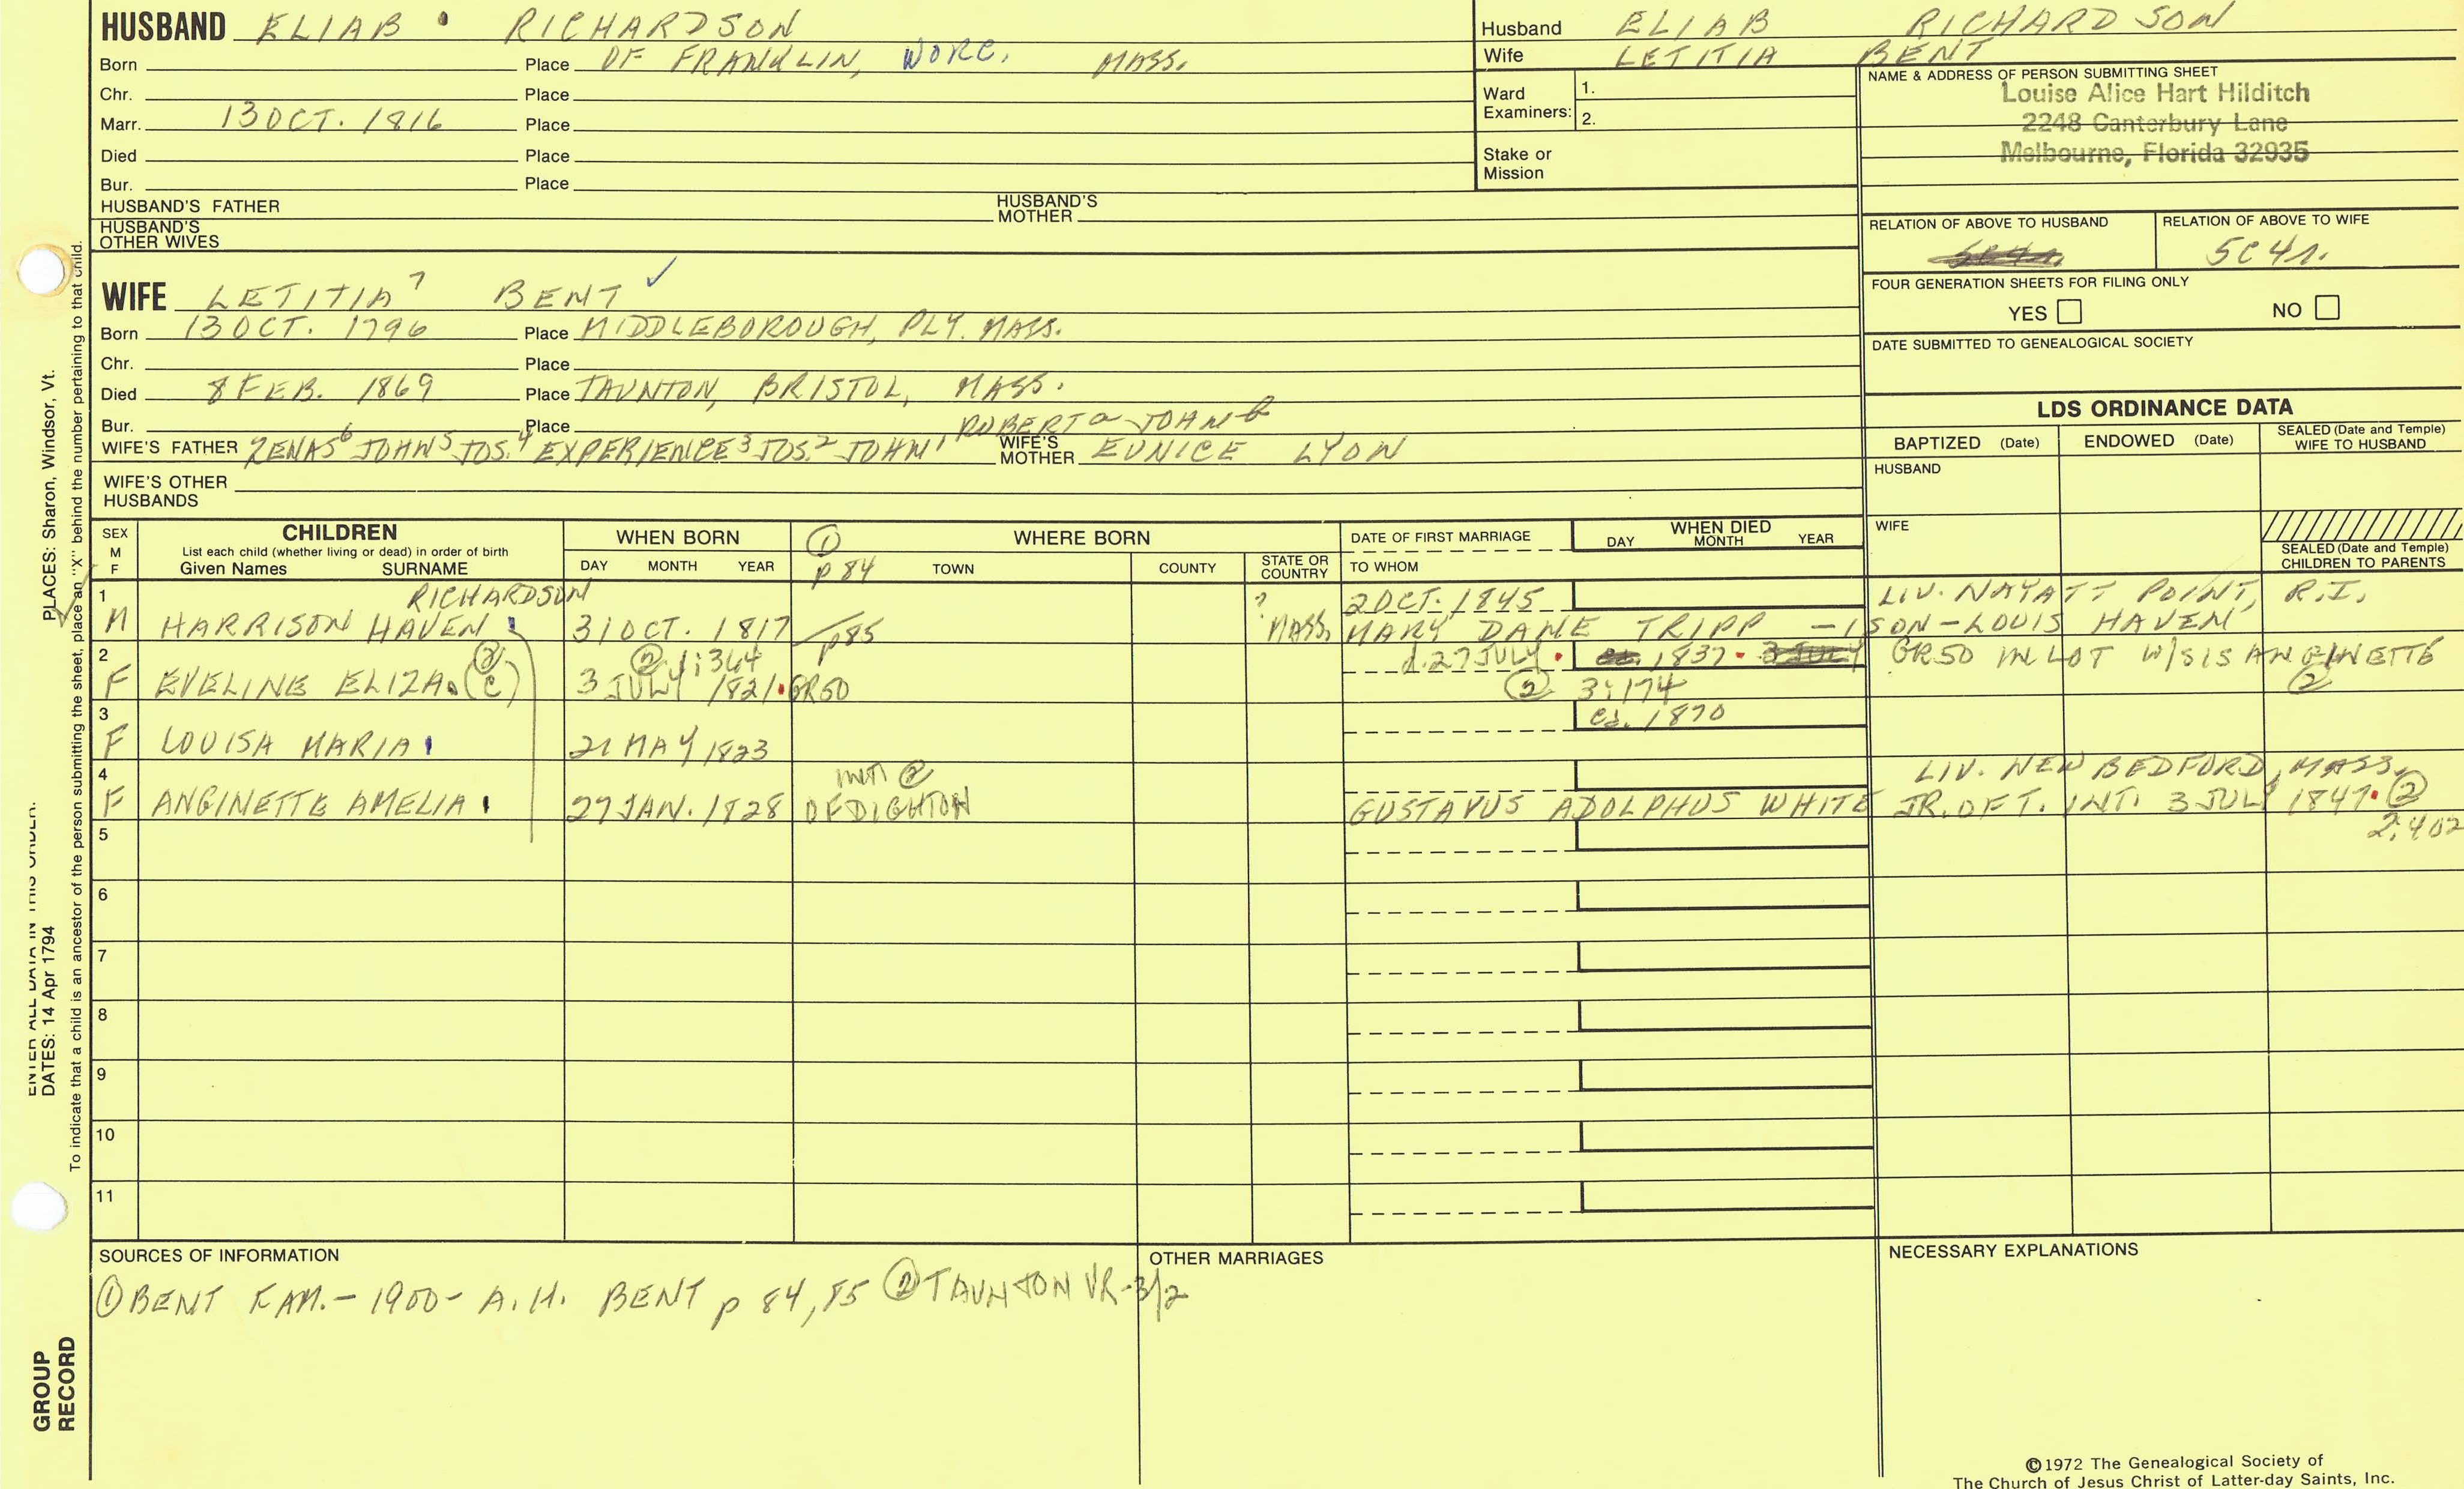 HUSBAND ELIAB RICHARDSON
Born Place OF FRANKLIN, WORC. MASS.
Chr. Place
Marr. 13 OCT. 1816 Place
Died Place
Bur. Place
HUSBAND'S FATHER HUSBAND'S MOTHER
HUSBAND'S OTHER WIVES
Husband ELIAB RICHARDSON
Wife LETITIA BENT
Ward Examiners: 1.
2.
Stake or Mission
NAME & ADDRESS OF PERSON SUBMITTING SHEET
Louise Alice Hart Hilditch
2248 Canterbury Lane
Melbourne, Florida 32935
RELATION OF ABOVE TO HUSBAND RELATION OF ABOVE TO WIFE
5C4r.
FOUR GENERATION SHEETS FOR FILING ONLY
YES NO
DATE SUBMITTED TO GENEALOGICAL SOCIETY
WIFE LETITIA 7 BENT ✓
Born 13 OCT. 1796 Place MIDDLEBOROUGH, PLY. MASS.
Chr. Place
Died 8 FEB. 1869 Place TAUNTON, BRISTOL, MASS.
Bur. Place ROBERT a JOHN b
WIFE'S FATHER ZENAS 6 JOHN 5 JOS. 4 EXPERIENCE 3 JOS. 2 JOHN 1 WIFE'S MOTHER EUNICE LYON
WIFE'S OTHER HUSBANDS
LDS ORDINANCE DATA
BAPTIZED (Date) ENDOWED (Date) SEALED (Date and Temple) WIFE TO HUSBAND
HUSBAND
WIFE
SEALED (Date and Temple) CHILDREN TO PARENTS
SEX M F CHILDREN WHEN BORN ① p 84 WHERE BORN DATE OF FIRST MARRIAGE WHEN DIED
List each child (whether living or dead) in order of birth
Given Names SURNAME DAY MONTH YEAR TOWN COUNTY STATE OR COUNTRY TO WHOM DAY MONTH YEAR
1 RICHARDSON ? 2 OCT. 1845 LIV. NAYATT POINT, R.I.
M HARRISON HAVEN 31 OCT. 1817 p85 MASS. MARY DANE TRIPP - 1 SON - LOUIS HAVEN
2 ② ② 1:364 d. 27 JULY 1837 3 JULY GR50 IN LOT W/SIS ANGINETTE ②
F EVELINE ELIZA (C) 3 JULY 1821 GR50 ② 3:174
3 ca. 1870
F LOUISA MARIA 21 MAY 1823
4 INT. ② LIV. NEW BEDFORD, MASS.
F ANGINETTE AMELIA 27 JAN. 1828 OF DIGHTON GUSTAVUS ADOLPHUS WHITE JR. OF T. INT. 3 JULY 1847 ②
2:402
5
6
7
8
9
10
11
SOURCES OF INFORMATION
① BENT FAM. - 1900 - A.H. BENT p 84, 85 ② TAUNTON VR - 3/2
OTHER MARRIAGES
NECESSARY EXPLANATIONS
©1972 The Genealogical Society of
The Church of Jesus Christ of Latter-day Saints, Inc.
PLACES: Sharon, Windsor, Vt.
ENTER ALL DATA IN THIS ORDER:
DATES: 14 Apr 1794
To indicate that a child is an ancestor of the person submitting the sheet, place an "X" behind the number pertaining to that child.
GROUP RECORD